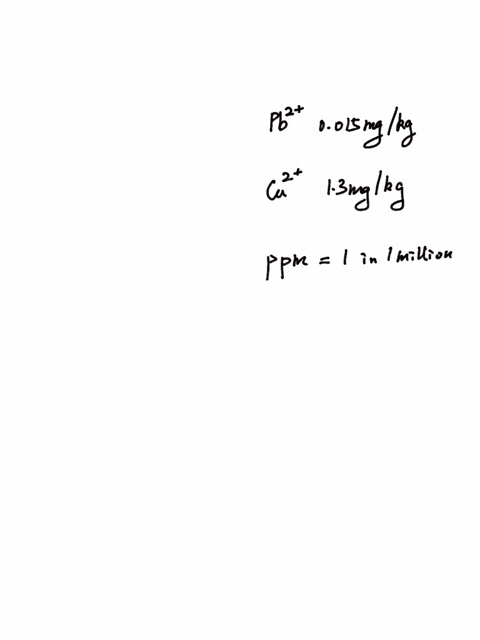 Pb²⁺ 0.015mg/kg
Cu²⁺ 1.3mg/kg
ppm = 1 in 1 million